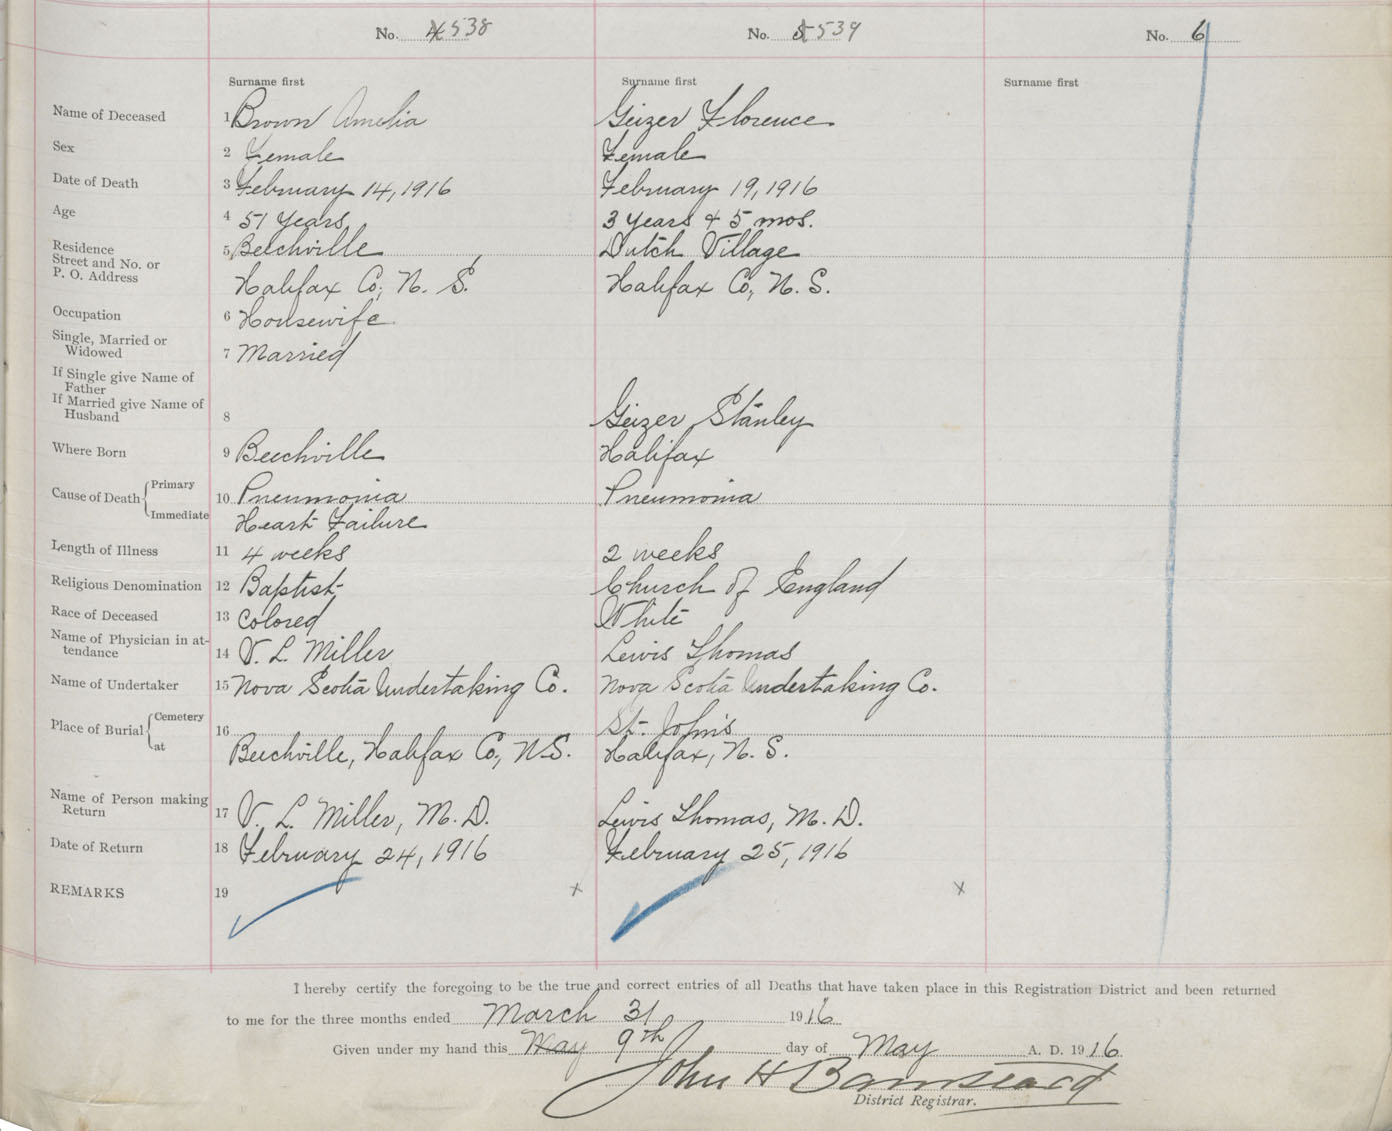 No. 4 538 No. 5 539 No. 6
Surname first Surname first Surname first
Name of Deceased 1 Brown Amelia Geizer Florence
Sex 2 Female Female
Date of Death 3 February 14, 1916 February 19, 1916
Age 4 51 Years 3 Years & 5 mos.
Residence 5 Beechville Dutch Village
Street and No. or
P. O. Address Halifax Co, N. S. Halifax Co, N. S.
Occupation 6 Housewife
Single, Married or
Widowed 7 Married
If Single give Name of
Father
If Married give Name of
Husband 8 Geizer Stanley
Where Born 9 Beechville Halifax
Cause of Death { Primary 10 Pneumonia Pneumonia
Immediate Heart Failure
Length of Illness 11 4 weeks 2 weeks
Religious Denomination 12 Baptist Church of England
Race of Deceased 13 Colored White
Name of Physician in at-
tendance 14 V. L. Miller Lewis Thomas
Name of Undertaker 15 Nova Scotia Undertaking Co. Nova Scotia Undertaking Co.
Place of Burial { Cemetery 16 St. John's
at Beechville, Halifax Co, N.S. Halifax, N. S.
Name of Person making
Return 17 V. L. Miller, M.D. Lewis Thomas, M.D.
Date of Return 18 February 24, 1916 February 25, 1916
REMARKS 19 x x
I hereby certify the foregoing to be the true and correct entries of all Deaths that have taken place in this Registration District and been returned
to me for the three months ended March 31 1916
Given under my hand this May 9th day of May A. D. 1916.
John H Barnstead
District Registrar.